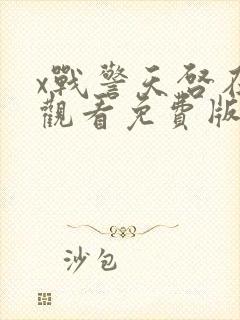 x戰警天啓在
觀看免費版
沙包